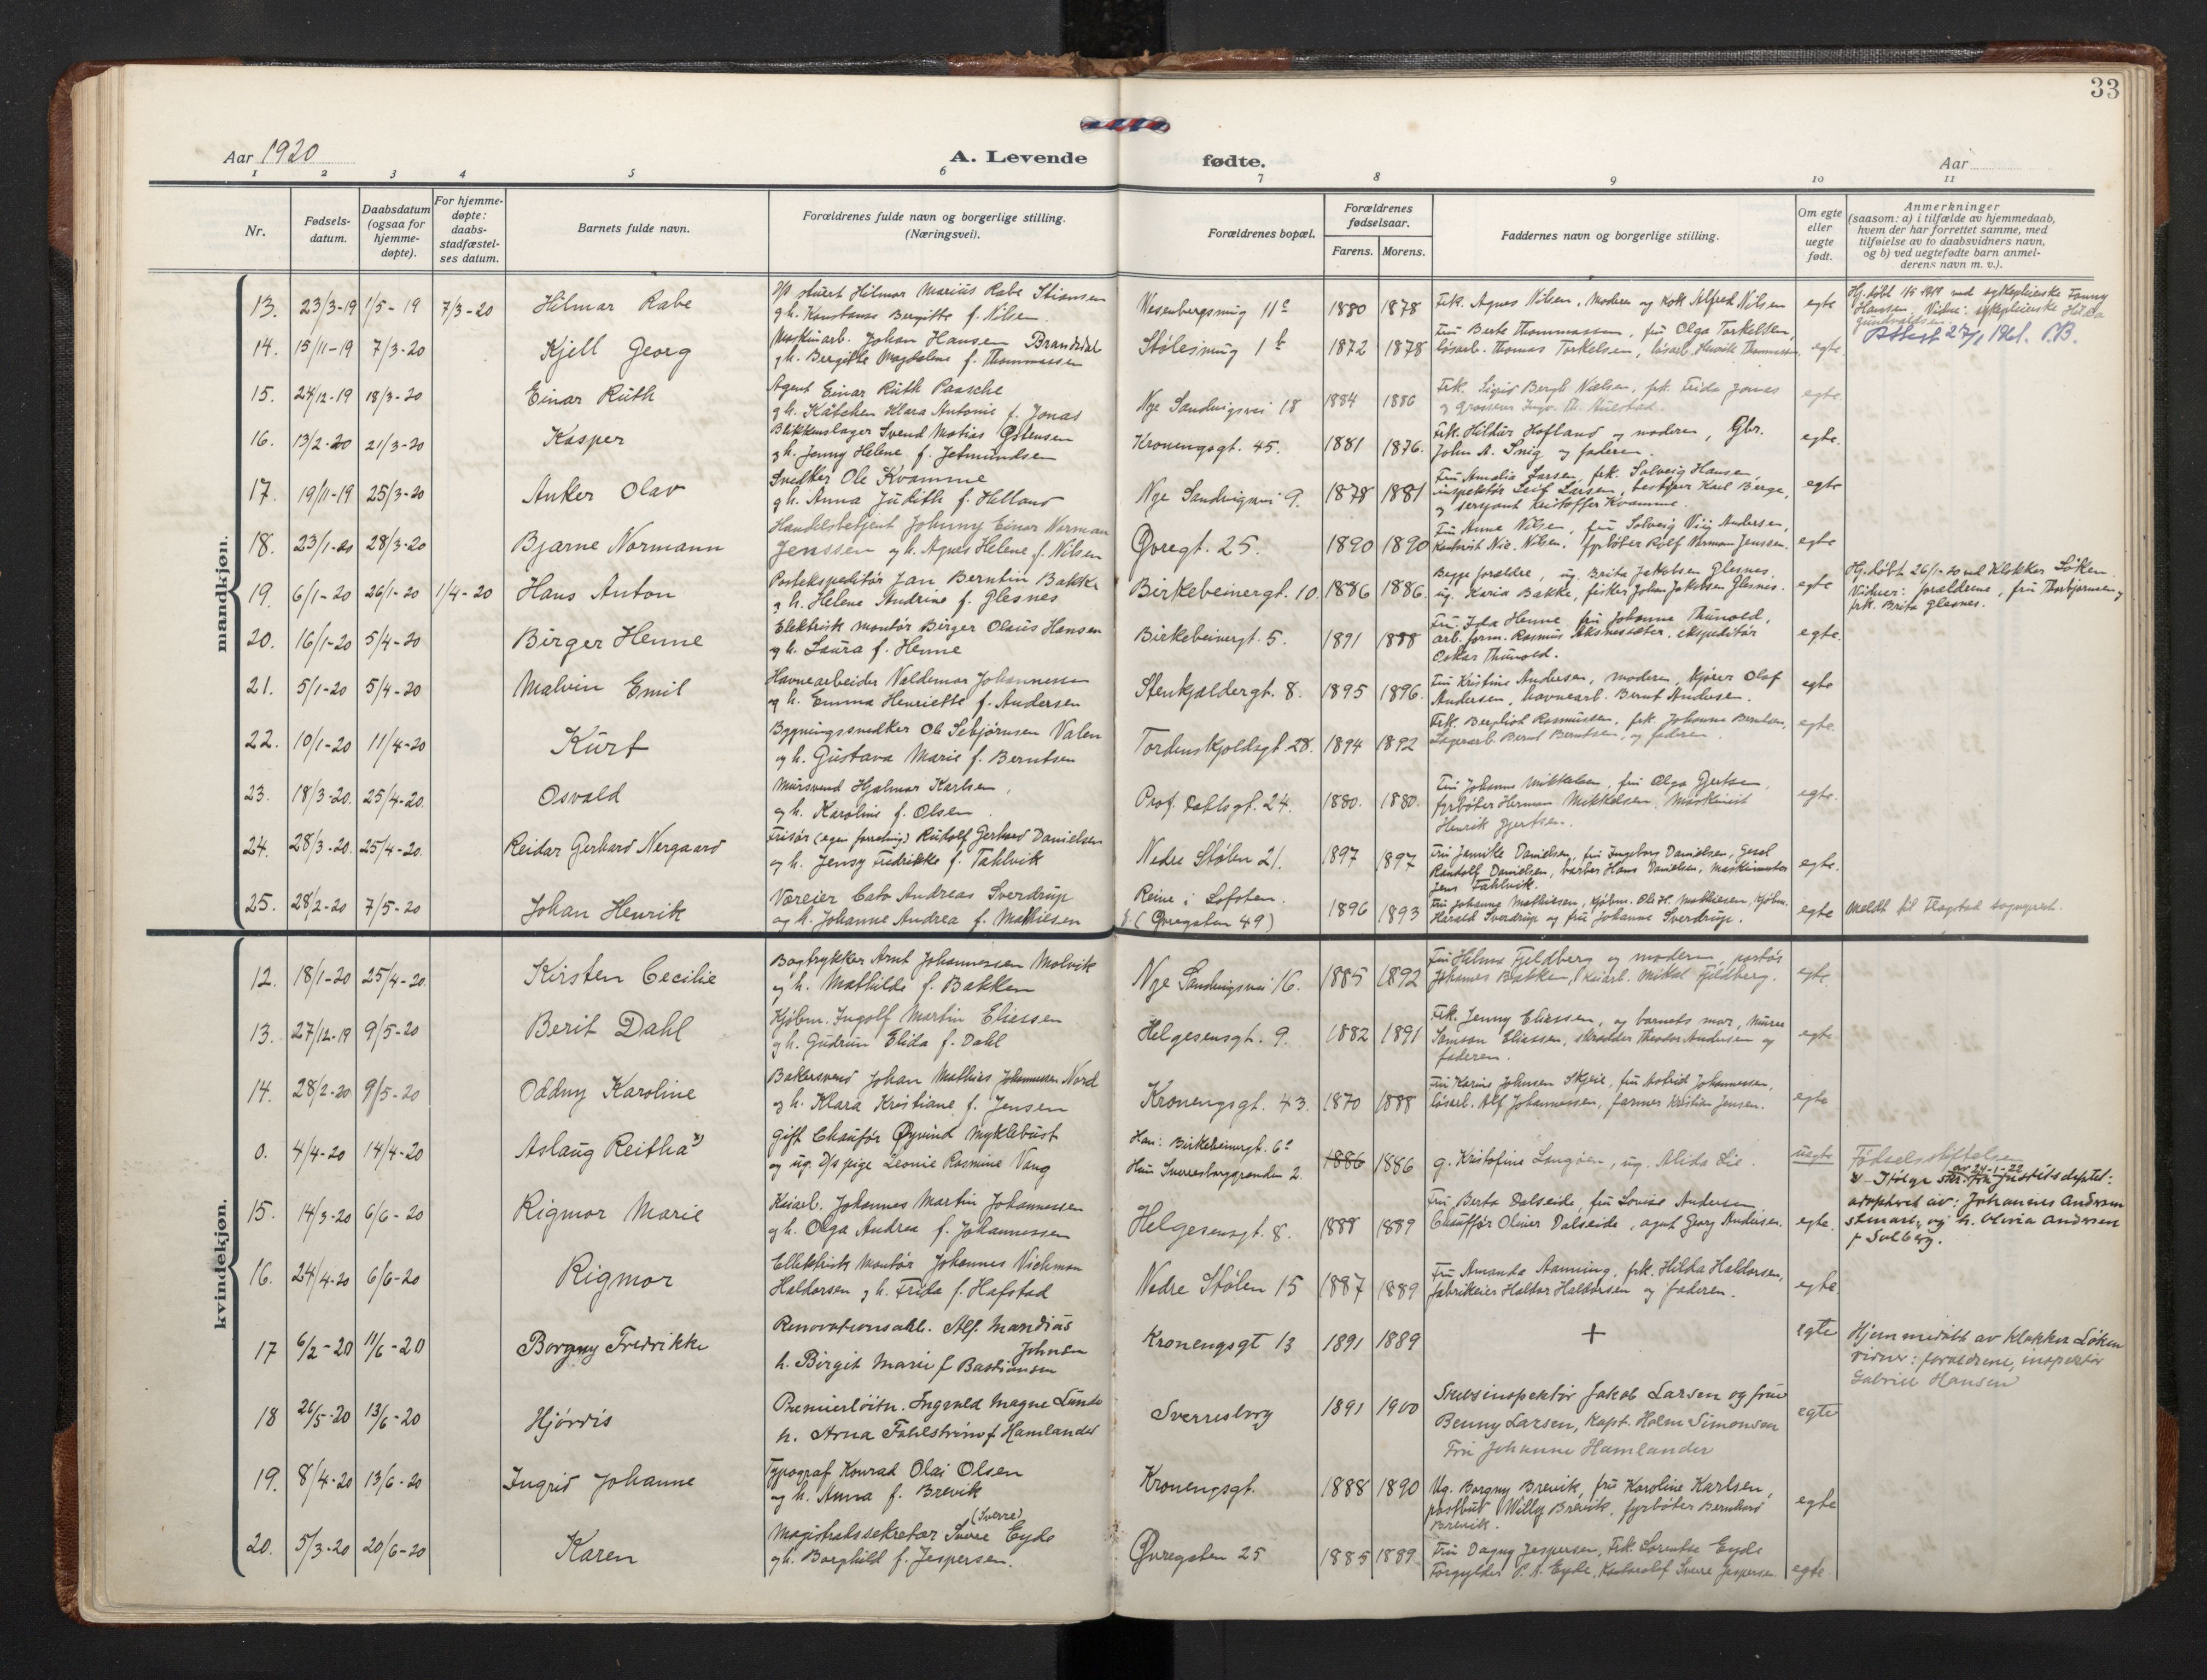 33
Aar 1920
A. Levende fødte.
Aar
1 2 3 4 5 6 7 8 9 10 11
Nr.
Fødsels-
datum.
Daabsdatum
(ogsaa for
hjemme-
døpte).
For hjemme-
døpte:
daabs-
stadfæstel-
ses datum.
Barnets fulde navn.
Forældrenes fulde navn og borgerlige stilling.
(Næringsvei).
Forældrenes bopæl.
Forældrenes
fødselsaar.
Farens. Morens.
Faddernes navn og borgerlige stilling.
Om egte
eller
uegte
født.
Anmerkninger
(saasom: a) i tilfælde av hjemmedaab,
hvem der har forrettet samme, med
tilføielse av to daabsvidners navn,
og b) ved uegtefødte barn anmel-
derens navn m. v.).
mandkjøn.
13. 23/3-19 1/5-19 7/3-20 Hilmar Rabe
D/s stuert Hilmar Marius Rabe Stiansen
og h. Konstanse Bergitte f. Nilsen
Wesenbergsmug 11c 1880 1878
Frk. Agnes Nilsen, Moderen og Kok Alfred Nilsen
egte
Hj. døbt 1/5 1919 ved sykepleierske Fanny
Hansen. Vidne: sykepleierske Hilda
Gundvaldsen
14. 15/11-19 7/3-20 Kjell Georg
Maskinarb. Johan Hansen Brandsdal
og h. Bergitte Magdalene f. Thommassen
Stølesmug 1b 1872 1878
Fru Berte Thommassen, fru Olga Torkelsen,
løsarb. Thomas Torkelsen, løsarb. Henrik Thommassen
egte.
Attest 27/1 1961.
15. 24/12-19 18/3-20 Einar Ruth
Agent Einar Ruth Paasche
og h. Kätchen Klara Antonie f. Jonas
Nye Sandvigsvei 18 1884 1886
Frk. Sigrid Bergh Nielsen, frk. Frida Jonas
og grosserer Ingv. Th. Hulstad.
egte.
16. 13/2-20 21/3-20 Kasper
Blikkenslager Svend Matias Østensen
og h. Jenny Helene f. Jetmundsen
Kronengsgt. 45. 1881 1876.
Frk. Hildur Hofland og moderen, Gbr.
John A. Snig og faderen.
egte.
17. 19/11-19 25/3-20 Anker Olav
Snedker Ole Kvamme
og h. Anna Judith f. Helland
Nye Sandvigsvei 9. 1878 1881
Fru Amalia Larsen, frk. Solveig Hansen,
inspektør Leif Larsen, bestyrer Karl Berge,
og sersjant Kristoffer Kvamme.
egte
18. 23/1-20 28/3-20 Bjarne Normann
Handelsbetjent Johnny Einar Norman
Jenssen og h. Agnes Helene f. Nilsen
Øvregt. 25. 1890 1890
Fru Anne Nilsen, fru Solveig Viig Andersen,
Kontorist Nic. Nilsen, fyrbøter Rolf Norman Jenssen.
egte
19. 6/1-20 26/1-20 1/4-20 Hans Anton
Postekspeditør Jan Berntin Bakke
og h. Helene Andrine f. Glesnes
Birkebeinergt. 10. 1886 1886.
Begge forældre, ug. Brita Jakobsen Glesnes,
ug. Karia Bakke, fisker Johan Jakobsen Glesnes.
egte
Hj. døbt 26/1-20 ved Klokker Løken.
Vidner: forældrene, fru Thorbjørnsen og
frk. Brita Glesnes.
20. 16/1-20 5/4-20 Birger Henne
Elektrisk montør Birger Olaus Hansen
og h. Laura f. Henne
Birkebeinergt. 5. 1891 1888
Fru Ida Henne, fru Johanne Thunold,
arb. form. Rasmus Aksnesæter, ekspeditør
Oskar Thunold.
egte.
21. 5/1-20 5/4-20 Malvin Emil
Havnearbeider Valdemar Johannessen
og h. Emma Henriette f. Andersen
Stenkjældergt. 8. 1895 1896.
Fru Kristine Andersen, moderen, kjører Olaf
Andersen, havnearb. Bernt Andersen.
egte
22. 10/1-20 11/4-20 Kurt
Bygningssnedker Ole Sebjørnsen Valen
og h. Gustava Marie f. Berntsen
Tordenskjoldsgt. 28. 1894 1892
Frk. Bergliot Rasmussen, frk. Johanna Berntsen,
Lagerarb. Bernt Berntsen, og faderen.
egte.
23. 18/3-20. 25/4-20. Osvald
Mursvend Hjalmar Karlsen,
og h. Karoline f. Olsen
Prof. Dahlsgt. 24. 1880. 1880.
Fru Johanne Mikkelsen, fru Olga Gjertsen,
fyrbøter Herman Mikkelsen, Maskinist
Henrik Gjertsen.
egte.
24. 28/3-20. 25/4-20. Reidar Gerhard Nergaard
Frisør (egen forretning) Rudolf Gerhard Danielsen
og h. Jensy Fredrikke f. Tahlvik
Nedre Stølen 21. 1897 1897
Fru Jannike Danielsen, fru Ingeborg Danielsen,
Randolf Danielsen, barber Hans Danielsen, Maskinmester
Jens Tahlvik.
egte.
25. 28/2-20 7/5-20 Johan Henrik
Væreier Cato Andreas Sverdrup
og h. Johanne Andrea f. Mathiesen
Reine i Lofoten.
(Øvregaten 49) 1896 1893
Fru Johanne Mathiesen, kjøbm. Ole H. Mathiesen, kjøbm.
Harald Sverdrup og fru Johanne Sverdrup.
egte
Meldt til Flagstad sogneprest.
kvindekjøn.
12. 18/1-20 25/4-20. Kirsten Cecilie
Bogtrykker Arnt Johannessen Molvik
og h. Mathilde f. Bakken
Nye Sandvigsvei 16. 1885 1892
Fru Helma Fjeldberg og moderen,
Johannes Bakken, Kaiarb. Mikal Fjeldberg.
egte.
13. 27/12-19 9/5-20 Berit Dahl
Kjøbm. Ingolf Martin Eliassen
og h. Gudrun Elida f. Dahl
Helgesensgt. 9. 1882 1891
Frk. Jenny Eliassen, og barnets mor, murer
Samson Eliassen, skrædder Theodor Andersen og
faderen.
egte
14. 28/2-20 9/5-20 Oddny Karoline
Bakersvend Johan Mathias Johannessen Nord
og h. Klara Kristiane f. Jensen
Kronengsgt. 43. 1870 1888
Fru Karine Johnsen Skjeie, fru Astrid Johannessen,
løsarb. Alf Johannessen, farmer Kristian Jensen.
egte
0. 4/4-20 14/4-20 Aslaug Reitha x)
Gift Chaufør Øyvind Myklebust
og ug. D/s pige Leonie Rasmine Vang
Han: Birkebeinergt. 6c
Hun Sverresborggrenden 2. 1886 1886
g. Kristofine Langøen, ug. Alida Lie.
uegte
Fødselsstiftelsen
x) Ifølge skr. fra Justitsdeptet:
av 24-1-22
adoptert av: Johannes Andersen
stenarb. og h. Olivia Andersen
f. Solberg.
15. 14/3-20 6/6-20 Rigmor Marie
Kaiarb. Johannes Martin Johannessen
og h. Olga Andrea f. Johannessen
Helgesensgt. 8. 1888 1889
Fru Berta Dalseide, fru Lovise Andersen
Chauffør Oliver Dalseide, agent Georg Andersen.
egte.
16. 24/4-20 6/6-20 Rigmor
Ellektrisk Montør Johannes Vichman
Haldorsen og h. Frida f. Hafstad
Nedre Stølen 15 1887 1889
Fru Amanda Aanning, frk. Hilda Haldorsen,
fabrikeier Haldor Haldorsen og faderen.
egte.
17 6/2-20 11/6-20 Borgny Fredrikke
Renovationsarb. Alf. Mandius
Johnsen
h. Birgit Marie f Bastiansen
Kronengsgt 13 1891 1889
+
egte
Hjemmedøbt av Klokker Løken
vidner: forældrene, inspektør
Gabriel Hansen
18 26/5-20 13/6-20 Hjørdis
Premierløitn. Ingvald Magne Lunde
h. Arna Fahlstrøm f Hamlander
Sverresborg 1891 1900
Skibsinspektør Jakob Larsen og frue
Benny Larsen, Kapt. Holm Simonsen
Fru Johanne Hamlander
egte
19. 8/4-20 13/6-20 Ingrid Johanne
Typograf Konrad Olai Olsen
og h. Anna f. Brevik
Kronengsgt. 1888 1890
Ug. Borgny Brevik, fru Karoline Karlsen,
postbud Willy Brevik, fyrbøter Bernhard
Brevik.
egte
20. 5/3-20 20/6-20 Karen
(Sverre)
Magistratssekretær Sverre Eyde
og h. Borghild f. Jespersen.
Øvregaten 25 1885 1889
Fru Dagny Jespersen, Frk. Lorentse Eyde
Forgylder P. A. Eyde, Kontorchef Sverre Jespersen.
egte